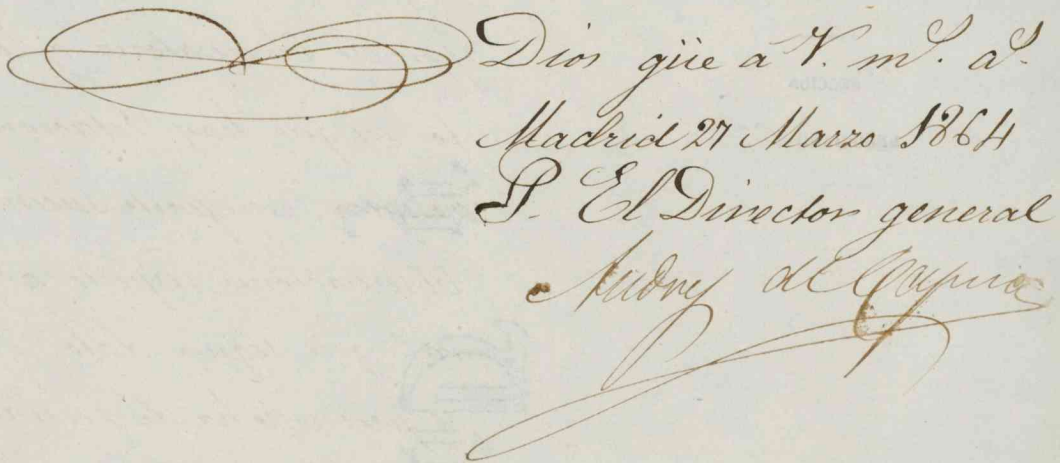 Dios güe a V. m.s a.s
Madrid 27 Marzo 1864
P. El Director general
Andres de